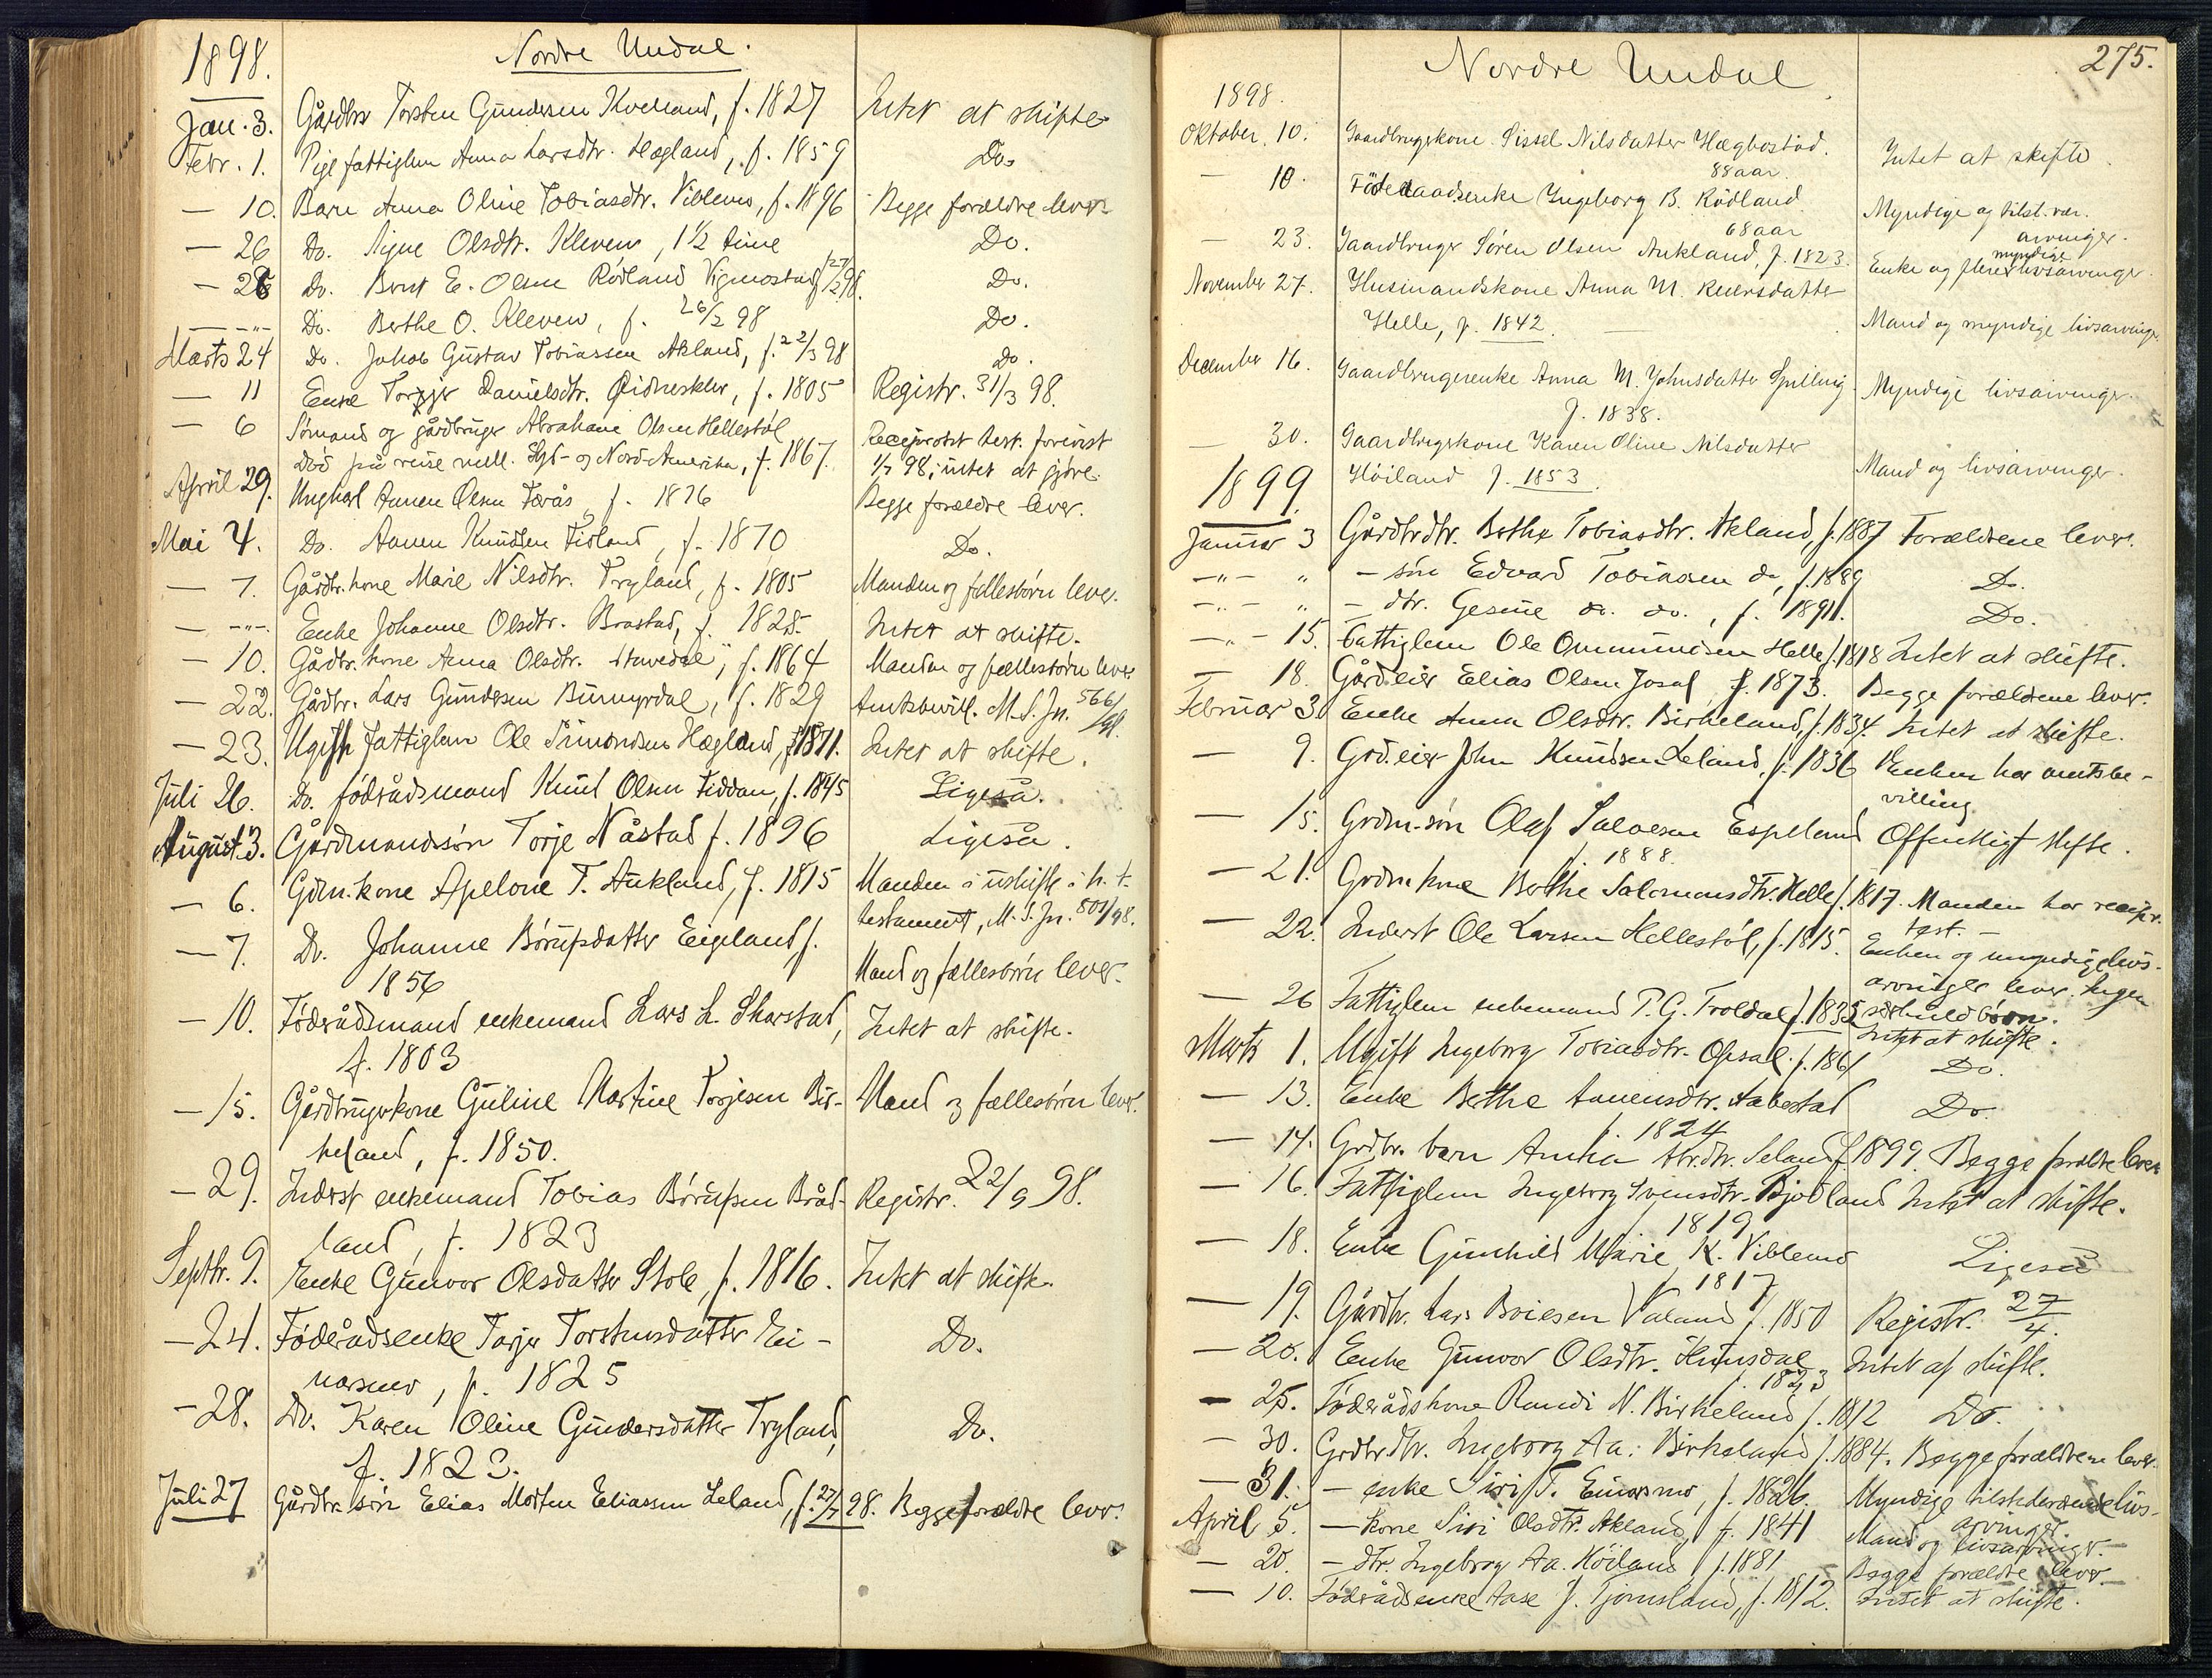 1898. Nordre Undal.
Jan. 3. Gårdbr Torsten Gundersen Kvelland, f. 1827 Intet at skifte
Febr. 1. Pige fattiglem Anna Larsdtr. Hægland, f. 1859 Do.
— 10. Barn Anna Oline Tobiasdtr. Viblemo, f. 1896 Begge forældre lever
— 26 Do. Signe Olsdtr. Kleven, 1½ time Do.
— 28 Do. Bernt E. Olsen Rödland Vigmostad, 27/2 98. Do.
— -"- Do. Berthe O. Kleven, f. 26/2 98 Do.
Marts 24 Do. Jakob Gustav Tobiassen Akland, f. 22/3 98 Do.
— 11 Enke Torjer Danielsdtr. Eidneskler, f. 1805 Registr. 31/3 98.
— 6 Sömand og gårdbruger Abraham Olsen Hellestöl Reciprokt test. forevist
död på reise mell. Syd- og Nord-Amerika, f. 1867. 1/7 98; intet at gjöre.
April 29. Ungkarl Aanen Olsen Færås, f. 1876 Begge forældre lever.
Mai 4. Do. Aanen Knudsen Fidland, f. 1870 Do.
— 7. Gårdbr. kone Marie Nilsdtr. Tryland, f. 1805 Manden og fællesbörn lever.
— -"- Enke Johanne Olsdtr. Brastad, f. 1828. Intet at skifte.
— 10. Gårdbr. kone Anna Olsdtr. Havedal, f. 1864 Manden og fællesbörn lever
— 22. Gårdbr. Lars Gundersen Buumyrdal, f. 1829 Amtsbevill. M. S. Jn. 566/98.
— 23. Ugift fattiglem Ole Simondsen Hægland, f. 1871. Intet at skifte.
Juli 26. Do. födrådsmand Knud Olsen Fiddan, f. 1845 Ligeså.
August 3. Gårdmandssön Torje Nåstad f. 1896 Ligeså.
— 6. Gdm. kone Apelone T. Aukland, f. 1815 Manden i uskifte i h. t.
testament, M. S. Jn. 801/98.
— 7. Do. Johanne Börupsdatter Eigeland, f.
1856 Mand og fællesbörn lever.
— 10. Föderådsmand enkemand Lars L. Skarstad, Intet at skifte.
f. 1803
— 15. Gårdbrugerkone Guline Martine Torjesen Bir- Mand og fællesbörn lever.
keland, f. 1850.
— 29. Inderst enkemand Tobias Börupsen Bråd- Registr. 22/9 98.
land, f. 1823
Septbr. 9. Enke Gunvor Olsdatter Stole, f. 1816. Intet at skifte
— 24. Föderådsenke Tarjer Torstensdatter Ei- Do.
narsmo, f. 1825
— 28. Do. Karen Oline Gundersdatter Tryland, Do.
f. 1823.
Juli 27 Gårdbr. sön Elias Morten Eliassen Leland, f. 27/7 98. Begge forældre lever.
275.
Nordre Undal
1898.
Oktober. 10. Gaardbrugerkone Sissel Nilsdatter Hægbostad. Intet at skifte.
88 aar.
— 10. Föderaadsenke Ingeborg B. Rödland Myndige og tilst.vær.
68 aar arvinger.
— 23. Gaardbruger Sören Olsen Aukland, f. 1823. Enke og flere myndige livsarvinger.
November 27. Husmandskone Anna M. Reiersdatter
Helle, f. 1842. Mand og myndige livsarvinger
December 16. Gaardbrugerenke Anna M. Johnsdatter Spilling Myndige livsarvinger.
f. 1838.
— 30. Gaardbrugerkone Karen Oline Nilsdatter
Höiland f. 1853. Mand og livsarvinger.
1899.
Januar 3 Gårdbrdtr. Berthe Tobiasdtr. Akland, f. 1887 Forældrene lever.
-"- " - sön Edvard Tobiassen do, f. 1889 Do.
-"- " - dtr. Gesine do. do., f. 1891. Do.
-"- 15. Fattiglem Ole Ommundsen Helle f. 1818 Intet at skifte.
— 18. Gårdeier Elias Olsen Josal, f. 1873. Begge forældrene lever.
Februar 3. Enke Anna Olsdtr. Birkeland, f. 1834. Intet at skifte.
— 9. Grd.eier John Knudsen Leland, f. 1836 Enken har amtsbe-
villing
— 15. Grdm.sön Olaf Salvesen Espeland Offentligt skifte.
f. 1888.
— 21. Grdm. kone Berthe Salomonsdtr. Helle f. 1817. Manden har recipr.
test. -
— 22. Inderst Ole Larsen Hellestöl, f. 1815. Enken og umyndige livs-
arvinger lever. Ingen
særkuldbörn.
— 26 Fattiglem enkemand P. G. Troldal f. 1835 Intet at skifte.
Marts 1. Ugift Ingeborg Tobiasdtr. Opsal f. 1861 Do.
— 13. Enke Berthe Aanensdtr. Aabestad Do
f. 1824
— 14. Grdbr. barn Amtia Abr.dtr. Seland f. 1899. Begge forældre lever
— 16. Fattiglem Ingeborg Svensdtr. Bjodland Intet at skifte.
f. 1819
— 18. Enke Gunhild Marie K. Viblemo Ligeså
f. 1817
— 19. Gårdbr. Lars Boiesen Valand f. 1850 Registr. 27/4.
— 20. Enke Gunvor Olsdtr. Hunsdal Intet at skifte.
f. 1823
— 25. Föderådskone Randi N. Birkeland f. 1812 Do.
— 30. Grdbrdtr. Ingeborg Aa. Birkeland f. 1884. Begge forældrene lever
— 31. - enke Siri T. Einarsmo, f. 1826. Myndige tilstedeværende livs-
arvinger.
April 5. - kone Siri Olsdtr. Akland, f. 1841 Mand og livsarvinger.
— 20. - dtr. Ingeborg Aa. Höiland f. 1881 Begge forældre lever
— 10. Föderådsenke Aase J. Tjomsland, f. 1812. Intet at skifte.